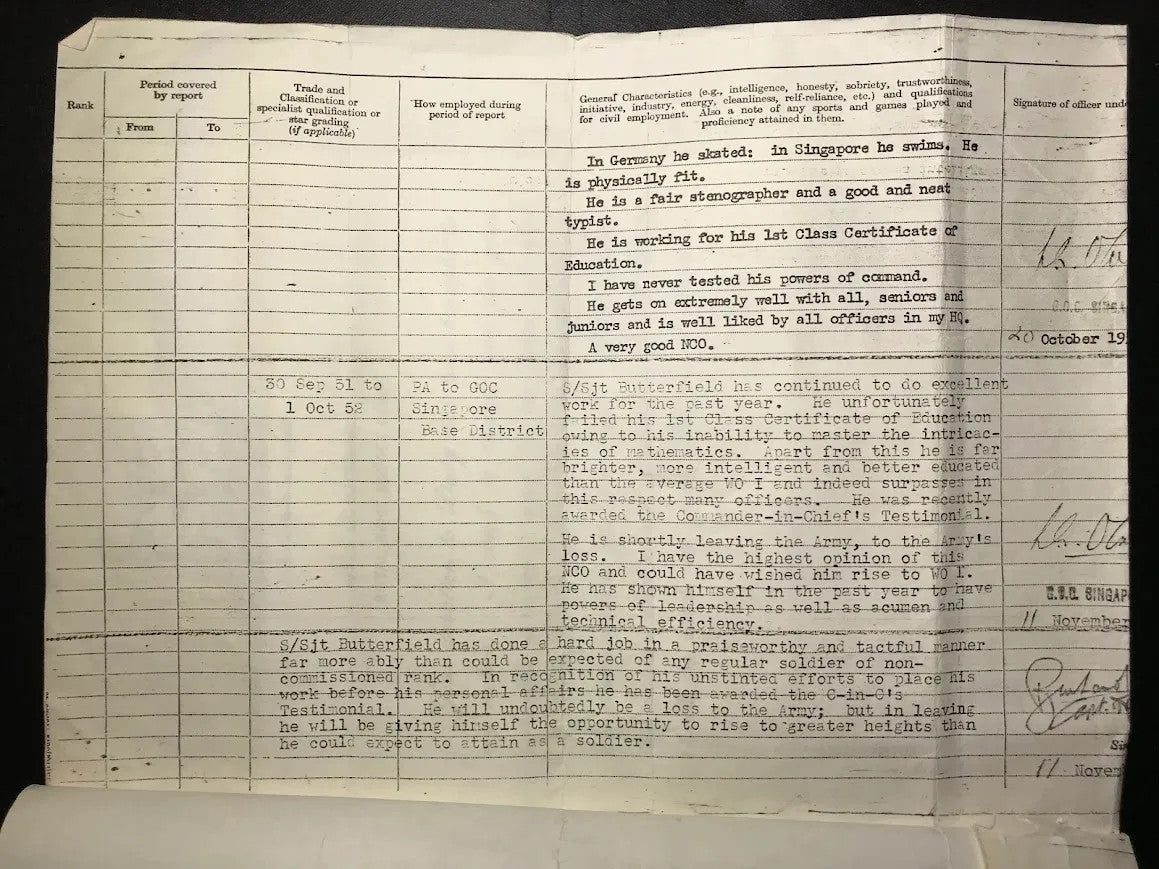 Rank
Period covered
by report
From
To
Trade and
Classification or
specialist qualification or
star grading
(if applicable)
How employed during
period of report
General Characteristics (e.g., intelligence, honesty, sobriety, trustworthiness,
initiative, industry, energy, cleanliness, relf-reliance, etc.) and qualifications
for civil employment. Also a note of any sports and games played and
proficiency attained in them.
Signature of officer unde
In Germany he skated: in Singapore he swims. He
is physically fit.
He is a fair stenographer and a good and neat
typist.
He is working for his 1st Class Certificate of
Education.
I have never tested his powers of command.
He gets on extremely well with all, seniors and
juniors and is well liked by all officers in my HQ.
A very good NCO.
20 October 19
30 Sep 51 to
1 Oct 52
PA to GOC
Singapore
Base District
S/Sjt Butterfield has continued to do excellent
work for the past year. He unfortunately
failed his 1st Class Certificate of Education
owing to his inability to master the intricac-
ies of mathematics. Apart from this he is far
brighter, more intelligent and better educated
than the average WO I and indeed surpasses in
this respect many officers. He was recently
awarded the Commander-in-Chief's Testimonial.
He is shortly leaving the Army, to the Army's
loss. I have the highest opinion of this
NCO and could have wished him rise to WO I.
He has shown himself in the past year to have
powers of leadership as well as acumen and
technical efficiency.
G.O.C. SINGAP
11 November
S/Sjt Butterfield has done a hard job in a praiseworthy and tactful manner
far more ably than could be expected of any regular soldier of non-
commissioned rank. In recognition of his unstinted efforts to place his
work before his personal affairs he has been awarded the C-in-C's
Testimonial. He will undoubtedly be a loss to the Army; but in leaving
he will be giving himself the opportunity to rise to greater heights than
he could expect to attain as a soldier.
Capt.
11 Novem